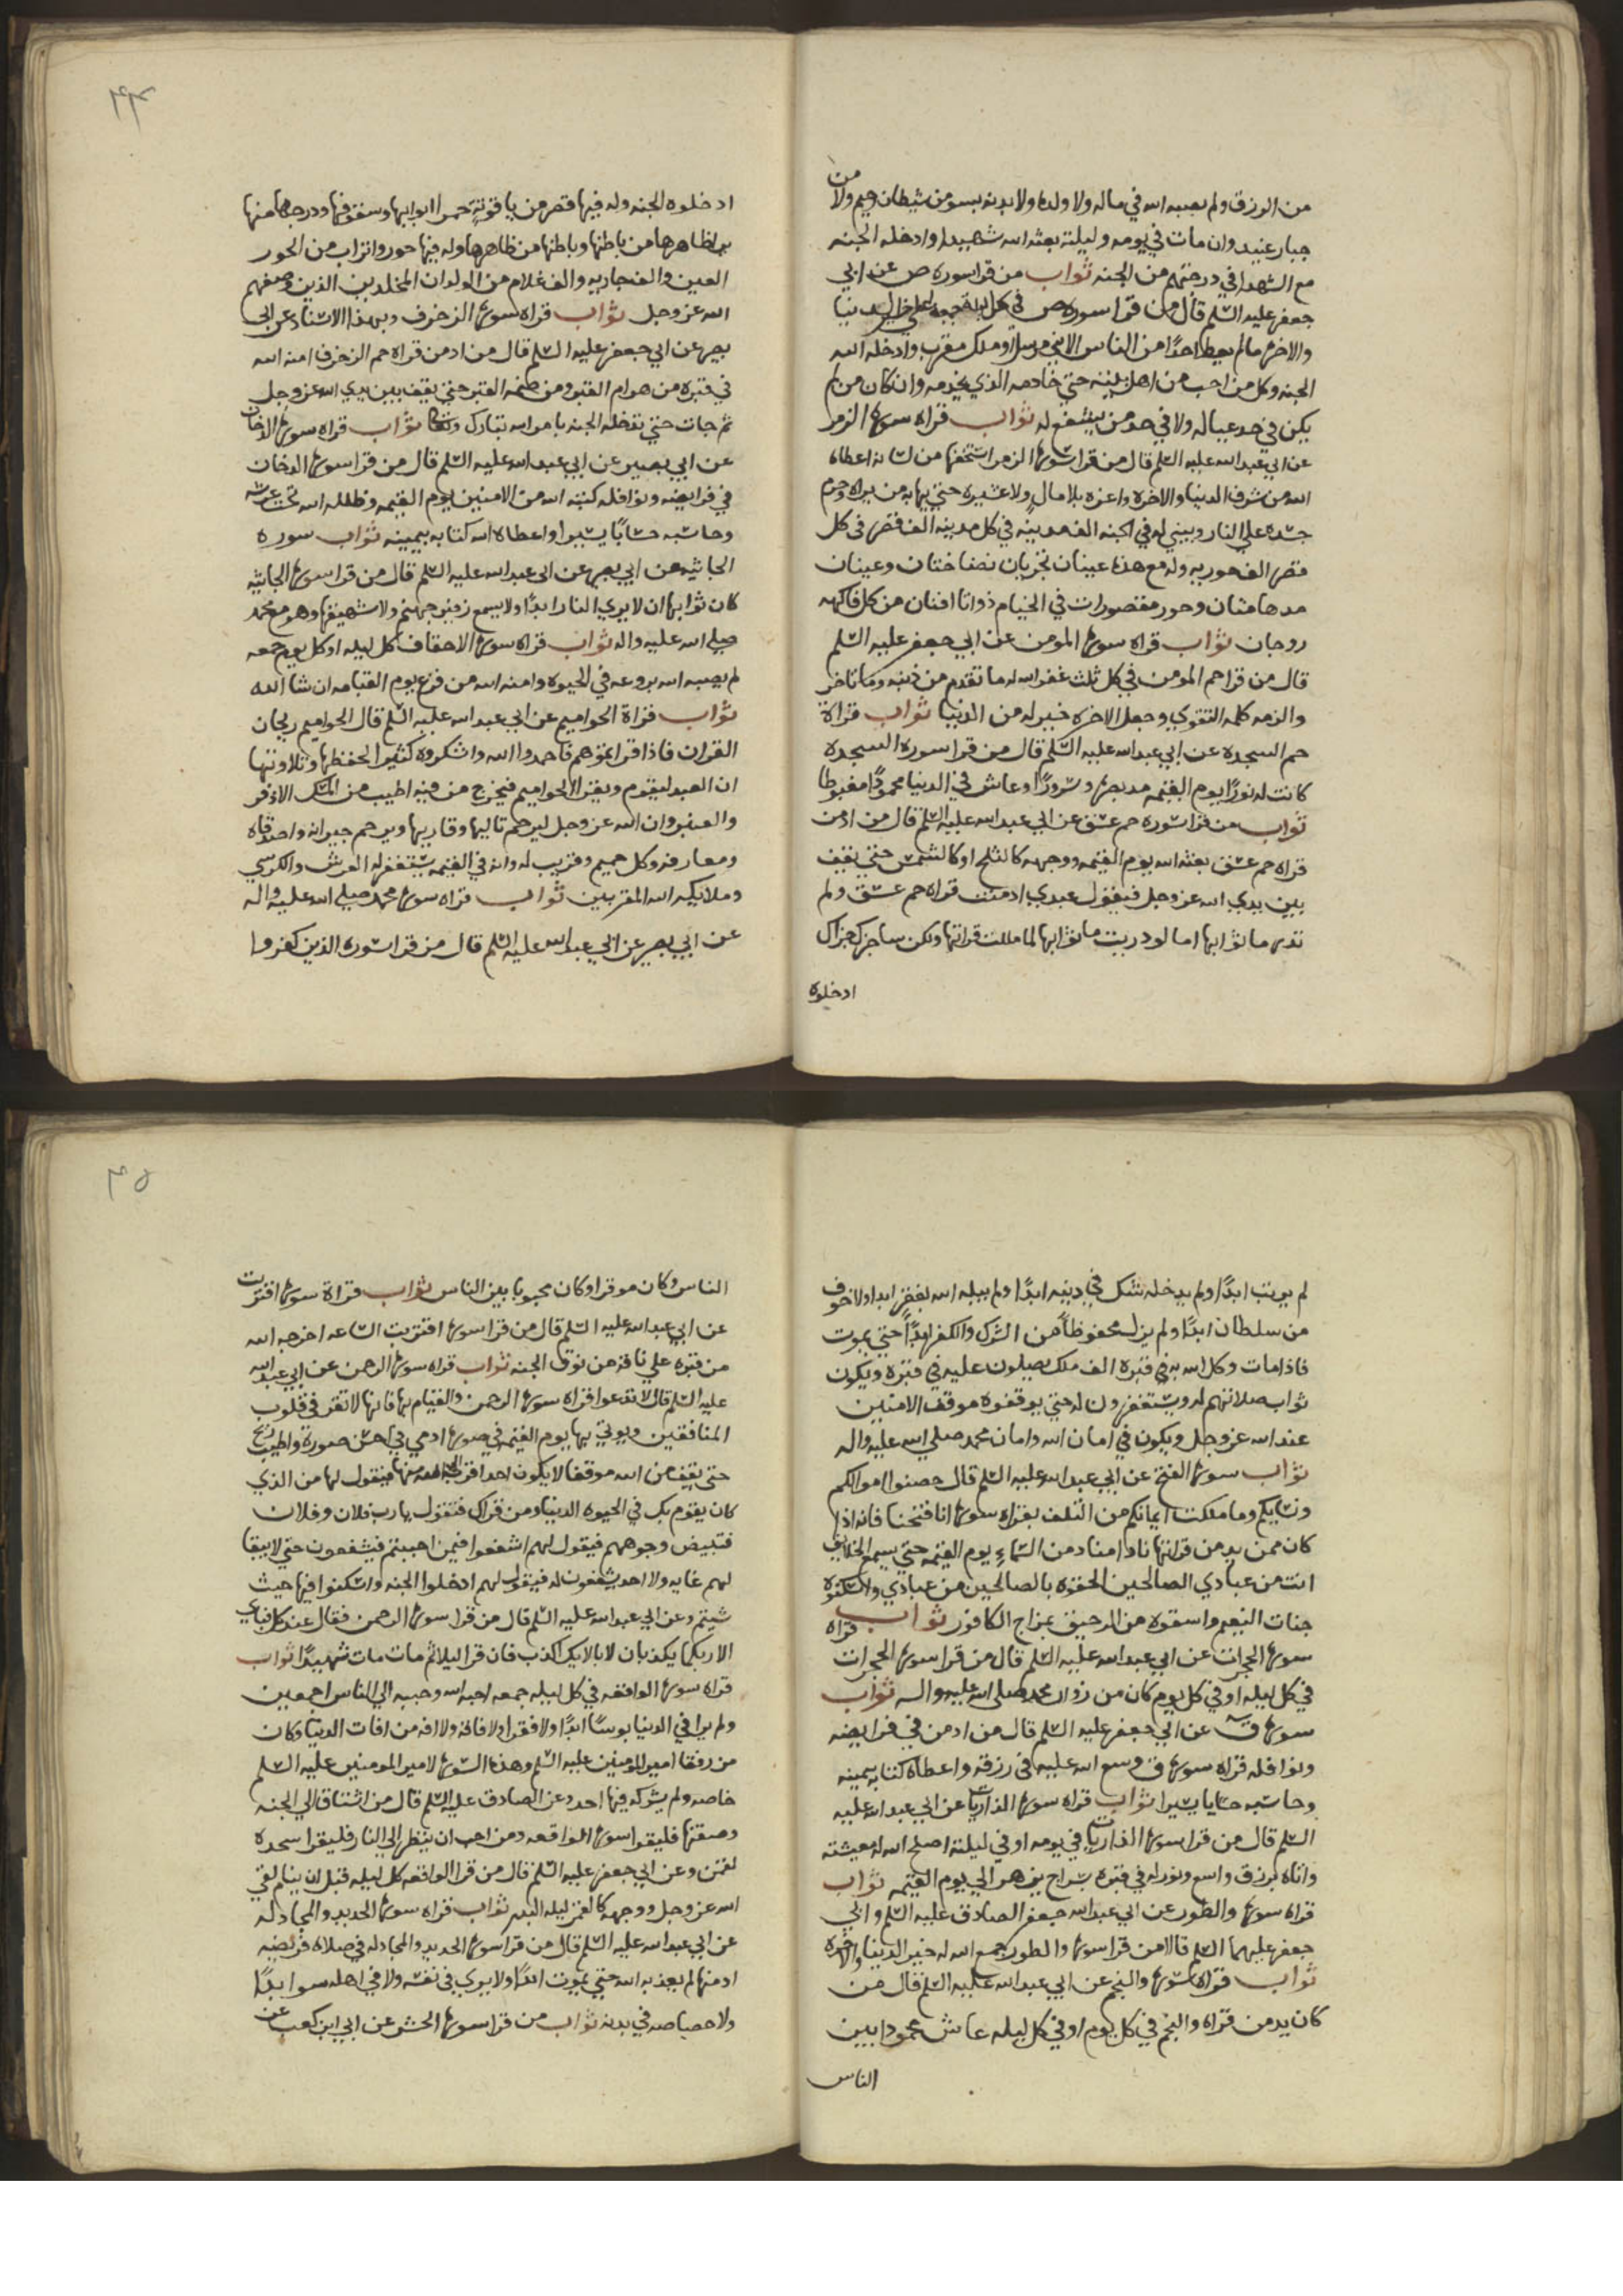 من
من الرزق ولم يصبه الله في ماله ولا ولده ولا بدنه بسو من شيطان رجيم ولا
جبار عنيد وان مات في يومه وليلته بعثه الله شهيدا وادخله الجنه
مع الشهدا في درجتهم من الجنه ثواب من قرا سوره ص عن ابي
جعفر عليه السلم قال من قرا سوره ص في كل ليله جمعه اعطي خير الدنيا
والاخره ما لم يعط احدًا من الناس الا نبي مرسل او ملك مقرب وادخله الله
الجنه وكل من احب من اهل بيته حتي خادمه الذي يخدمه وان كان من لم
يكن في حد عياله ولا في حد من يشفع له ثواب قراه سورة الزمر
عن ابي عبد الله عليه السلم قال من قرا سورة الزمر استخفها من لسانه اعطاه
الله من شرف الدنيا والاخره واعزه بلا مالٍ ولا عشيره حتي يهابه من يراه وحرم
جسده علي النار ويبني له في الجنه الف مدينه في كل مدينه الف قصر في كل
قصر الف حوريه وله مع هذا عينان تجريان نضاختان وعينان
مدهامتان وحور مقصورات في الخيام ذواتا افنان من كل فاكهه
زوجان ثواب قراه سورة المومن عن ابي جعفر عليه السلم
قال من قرا حم المومن في كل ثلث غفر الله له ما تقدم من ذنبه وما تاخر
والزمه كلمه التقوي وجعل الاخره خير له من الدنيا ثواب قراة
حم السجده عن ابي عبد الله عليه السلم قال من قرا سوره السجده
كانت له نورًا يوم القيمه مد بصره وسرورًا وعاش في الدنيا محمودًا مغبوطا
ثواب من قرا سوره حم عسق عن ابي عبد الله عليه السلم قال من ادمن
قراه حم عسق بعثه الله يوم القيمه ووجهه كالثلج او كالشمس حتي يقف
بين يدي الله عز وجل فيقول عبدي ادمنت قراه حم عسق ولم
تدر ما ثوابها اما لو دريت ما ثوابها لما مللت قراتها ولكن ساجزيك جزاك
ادخلوه
٤٤
ادخلوه الجنه وله فيها قصر من ياقوتة حمرا ابوابها وسقوفها ودرجها منها
يري ظاهرها من باطنها وباطنها من ظاهرها وله فيها حور واتراب من الحور
العين والف جاريه والف غلام من الولدان المخلدين الذين وصفهم
الله عز وجل ثواب قراه سورة الزخرف وبهذا الاسناد عن ابي
بصير عن ابي جعفر عليه السلم قال من ادمن قراه حم الزخرف امنه الله
في قبره من هوام القبر ومن ضمه القبر حتي يقف بين يدي الله عز وجل
ثم جات حتي تدخله الجنه بامر الله تبارك وتعالى ثواب قراه سورة الدخان
عن ابي بصير عن ابي عبد الله عليه السلم قال من قرا سورة الدخان
في فرايضه ونوافله كتبه الله من الامنين يوم القيمه وظلله الله تحت عرشه
وحاسبه حسابًا يسيرا واعطاه الله كتابه بيمينه ثواب سوره
الجاثيه عن ابي بصير عن ابي عبد الله عليه السلم قال من قرا سورة الجاثيه
كان ثوابها ان لا يري النار ابدًا ولا يسمع زفير جهنم ولا شهيقها وهو مع محمد
صلي الله عليه واله ثواب قراه سورة الاحقاف كل ليله او كل يوم جمعه
لم يصبه الله بروعه في الحيوه وامنه الله من فزع يوم القيامه ان شا الله
ثواب قراة الحواميم عن ابي عبد الله عليه السلم قال الحواميم ريحان
القران فاذا قراتموهم فاحمدوا الله واشكروه كثيرا لحفظها وتلاوتها
ان العبد ليقوم ويقرا الحواميم فيخرج من فيه اطيب من المسك الاذفر
والعنبر وان الله عز وجل ليرحم تاليها وقاريها ويرحم جيرانه واصدقاه
ومعارفه وكل حميم وقريب له وانه في القيمه يستغفر له العرش والكرسي
وملايكه الله المقربين ثواب قراه سورة محمد صلي الله عليه واله
عن ابي بصير عن ابي عبد الله عليه السلم قال من قرا سورة الذين كفروا
لم يرتب ابدًا ولم يدخله شك في دينه ابدًا ولم يبله الله بفقر ابدا ولا خوف
من سلطان ابدًا ولم يزل محفوظًا من الشرك والكفر ابدًا حتي يموت
فاذا مات وكل الله به في قبره الف ملك يصلون عليه في قبره ويكون
ثواب صلاتهم له ويستغفرون له حتي يوقفوه موقف الامنين
عند الله عز وجل ويكون في امان الله وامان محمد صلي الله عليه واله
ثواب سورة الفتح عن ابي عبد الله عليه السلم قال حصنوا اموالكم
ونسايكم وما ملكت ايمانكم من التلف بقراه سورة انا فتحنا فانه اذا
كان ممن يدمن قراتها نادا مناد من السماءِ يوم القيمه حتي يسمع الخلايق
انت من عبادي الصالحين الحقوه بالصالحين من عبادي واسكنوه
جنات النعيم واسقوه من الرحيق بمزاج الكافور ثواب قراه
سورة الحجرات عن ابي عبد الله عليه السلم قال من قرا سورة الحجرات
في كل ليله او في كل يوم كان من زوار محمد صلى الله عليه واله ثواب
سورة ق عن ابي جعفر عليه السلم قال من ادمن في فرايضه
ونوافله قراه سورة ق وسع الله عليه في رزقه واعطاه كتابه بيمينه
وحاسبه حسابا يسيرا ثواب قراه سورة الذاريات عن ابي عبد الله عليه
السلم قال من قرا سورة الذاريات في يومه او في ليلته اصلح الله له معيشته
واتاه برزق واسع ونور له في قبره بسراج يزهر الي يوم القيمه ثواب
قراه سورة والطور عن ابي عبد الله جعفر الصادق عليه السلم وابي
جعفر عليهما السلم قالا من قرا سورة والطور جمع الله له خير الدنيا والاخره
ثواب قراه سورة والنجم عن ابي عبد الله عليه السلم قال من
كان يدمن قراه والنجم في كل يوم او في كل ليله عاش محمودا بين
الناس
٤٥
الناس وكان موقرا وكان محبوبا بين الناس ثواب قراة سورة اقتربت
عن ابي عبد الله عليه السلم قال من قرا سورة اقتربت الساعه اخرجه الله
من قبره علي ناقة من نوق الجنه ثواب قراه سورة الرحمن عن ابي عبد الله
عليه السلم قال لا تدعوا قراه سورة الرحمن والقيام بها فانها لا تقر في قلوب
المنافقين ويوتي بها يوم القيمه في صورة ادمي في احسن صورة واطيب ريح
حتي يقف من الله موقفا لا يكون احد اقرب الي الله منها فيقول لها من الذي
كان يقوم بك في الحيوه الدنيا ومن قراك فتقول يا رب فلان وفلان
فتبيض وجوههم فيقول لهم اشفعوا فيمن احببتم فيشفعون حتي لا يبقا
لهم غايه ولا احد يشفعون له فيقول لهم ادخلوا الجنه واسكنوا فيها حيث
شيتم وعن ابي عبد الله عليه السلم قال من قرا سورة الرحمن فقال عند كل فباي
الا ربكما يكذبان لا بالايك اكذب فان قرا ليلا ثم مات مات شهيدًا ثواب
قراه سورة الواقعه في كل ليله جمعه احبه الله وحببه الي الناس اجمعين
ولم يرا في الدنيا بوسًا ابدًا ولا فقرا ولا فاقه ولا افه من افات الدنيا وكان
من رفقا امير المومنين عليه السلم وهذه السورة لامير المومنين عليه السلم
خاصه ولم يشركه فيها احد وعن الصادق عليه السلم قال من اشتاق الي الجنه
وصفتها فليقرا سورة الواقعه ومن احب ان ينظر الي النار فليقرا سجده
لقمن وعن ابي جعفر عليه السلم قال من قرا الواقعه كل ليله قبل ان ينام لقي
الله عز وجل ووجهه كالقمر ليله البدر ثواب قراه سورة الحديد والمجادله
عن ابي عبد الله عليه السلم قال من قرا سورة الحديد والمجادله في صلاه فريضه
ادمنها لم يعذبه الله حتي يموت ابدًا ولا يري في نفسه ولا في اهله سوا ابدًا
ولا خصاصه في بدنه ثواب من قرا سورة الحشر عن ابي ابن كعب عن